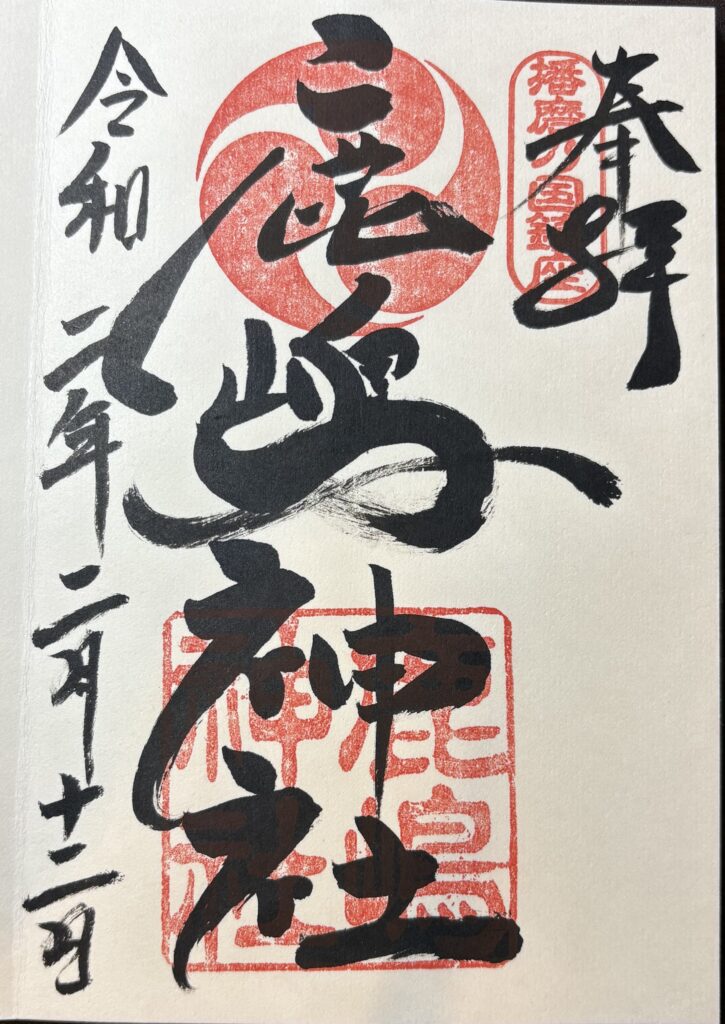 奉拝
播磨乃国鎮座
鹿嶋神社
鹿嶋神社
令和二年二月十二日